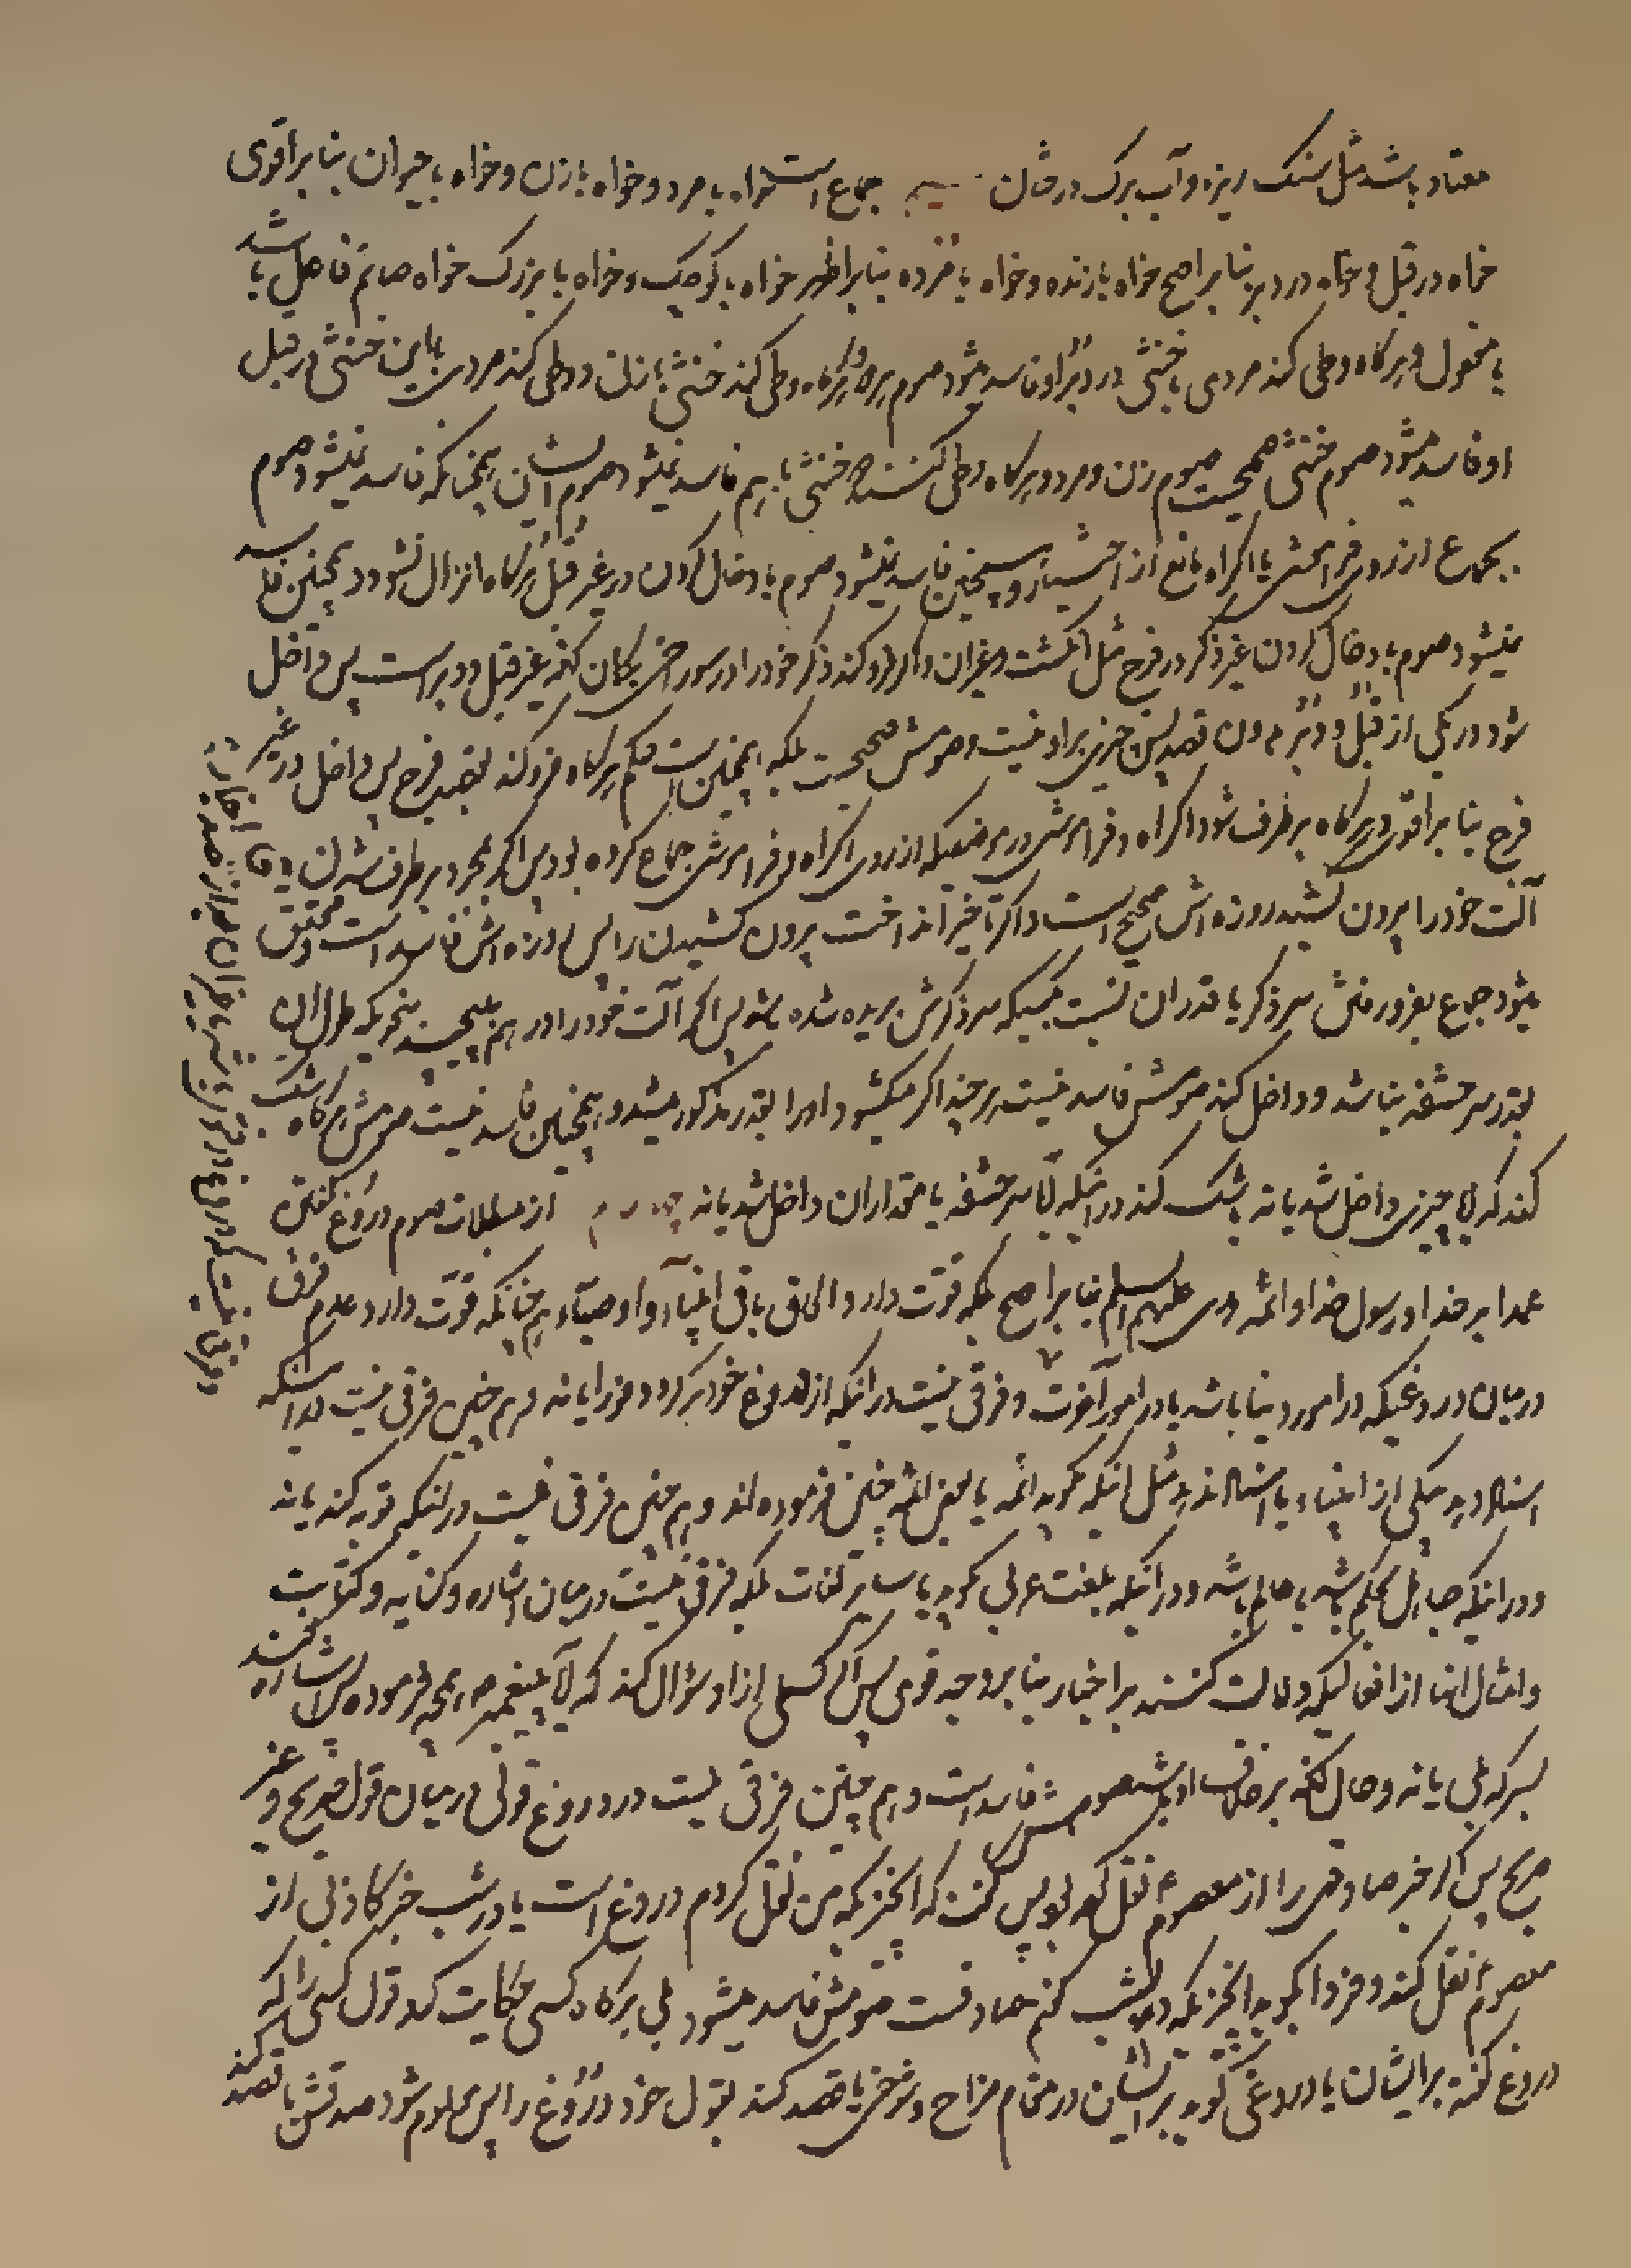 معتاد باشد مثل سنک ریزه و آب برک درختان سیم جماع است خواه با مرد و خواه با زن و خواه با حیوان بنا بر اقوی
خواه در قبل و خواه در دبر بنا بر اصح خواه با زنده و خواه با مرده بنا بر اظهر خواه با کوچک و خواه با بزرک خواه صائم فاعل باشد
یا مفعول و هرکاه وطی کند مردی با خنثی در دبر او فاسد میشود صوم هر دو و هرکاه وطی کند خنثی با زن و وطی کند مردی باین خنثی در قبل
او فاسد میشود صوم خنثی و صحیحست صوم زن و مرد و هرکاه وطی کنند دو خنثی با هم فاسد نمیشود صوم ایشان همچنانکه فاسد نمیشود صوم
بجماع از روی فراموشی یا اکراه مانع از اختیار و همچنین فاسد نمیشود صوم بادخال کردن در غیر قبل و دبر هرکاه انزال نشود و همچنین فاسد
نمیشود صوم بادخال کردن غیر ذکر در فرج مثل انکشت و غیر ان و اکر فرو کند ذکر خود را در سوراخی بکمان آنکه غیر قبل و دبر است پس داخل
شود در یکی از قبل و دبر بدون قصد پس چیزی بر او نیست و صومش صحیحست بلکه همچنین است حکم هرکاه فرو کند بقصد فرج پس داخل در غیر
فرج بنا بر اقوی و هرکاه بر طرف شود اکراه و فراموشی در موضعیکه از روی اکراه و فراموشی جماع کرده بود پس اکر بمجرد بر طرف شدن
آلت خود را بیرون کشید روزه اش صحیح است و اکر تاخیر انداخت بیرون کشیدن را پس روزه اش فاسد است و محقق
میشود جماع بفرو رفتن سر ذکر یا قدر ان نسبت بکسیکه سر ذکرش بریده شده باشد پس اکر آلت خود را در هم پیچید بنحویکه طول ان
بقدر سر حشفه نباشد و داخل کند صومش فاسد نیست هر چند اکر میکشود اورا بقدر مذکور میشد و همچنین فاسد نیست صومش هرکاه شک
کند که آیا چیزی داخل شد یا نه یا شک کند در اینکه آیا سر حشفه یا مقدار ان داخل شد یا نه چهارم از مبطلات صوم دروغ کفتن
عمدا بر خدا و رسول خدا و ائمه هدی علیهم السلم بنا بر اصح بلکه قوت دارد الحاق باقی انبیآء و اوصیآء هم چنانکه قوت دارد عدم فرق
در میان دروغیکه در امور دنیا باشد یا در امور آخرت و فرقی نیست در اینکه از دروغ خود برکردد فورا یا نه و هم چنین فرقی نیست در اینکه
اسناد دهد بیکی از انبیاء یا اسناد ندهد مثل اینکه بکوید ائمه یا بعض ائمه چنین فرموده اند و هم چنین فرقی نیست در اینکه توبه کند یا نه
و در اینکه جاهل بحکم باشد یا عالم باشد و در اینکه بلغت عربی بکوید یا سایر لغات بلکه فرقی نیست در میان اشاره و کنایه و کتابت
و امثال اینها از افعالیکه دلالت کنند بر اخبار بنا بر وجه قوی پس اکر کسی از او سؤال کند که آیا پیغمبر ص همچه فرموده پس اشاره کند
بسر که بلی یا نه و حال آنکه بر خلاف او باشد صومش فاسد است و هم چنین فرقی نیست در دروغ قولی در میان قول صریح و غیر
صریح پس اکر خبر صادقی را از معصوم ع نقل کند پس کفت که آنچیزیکه من نقل کردم دروغ است یا در شب خبر کاذبی از
معصوم ع نقل کند و فردا بکوید آنچیزیکه در شب کفتم صادقست صومش فاسد میشود بلی هرکاه کسی حکایت کند قول کسی را که
دروغ کفته بر ایشان یا دروغی کوید بر ایشان در مقام مزاح و شوخی یا قصد کند بقول خود دروغ را پس معلوم شود صدقش یا قصد کند